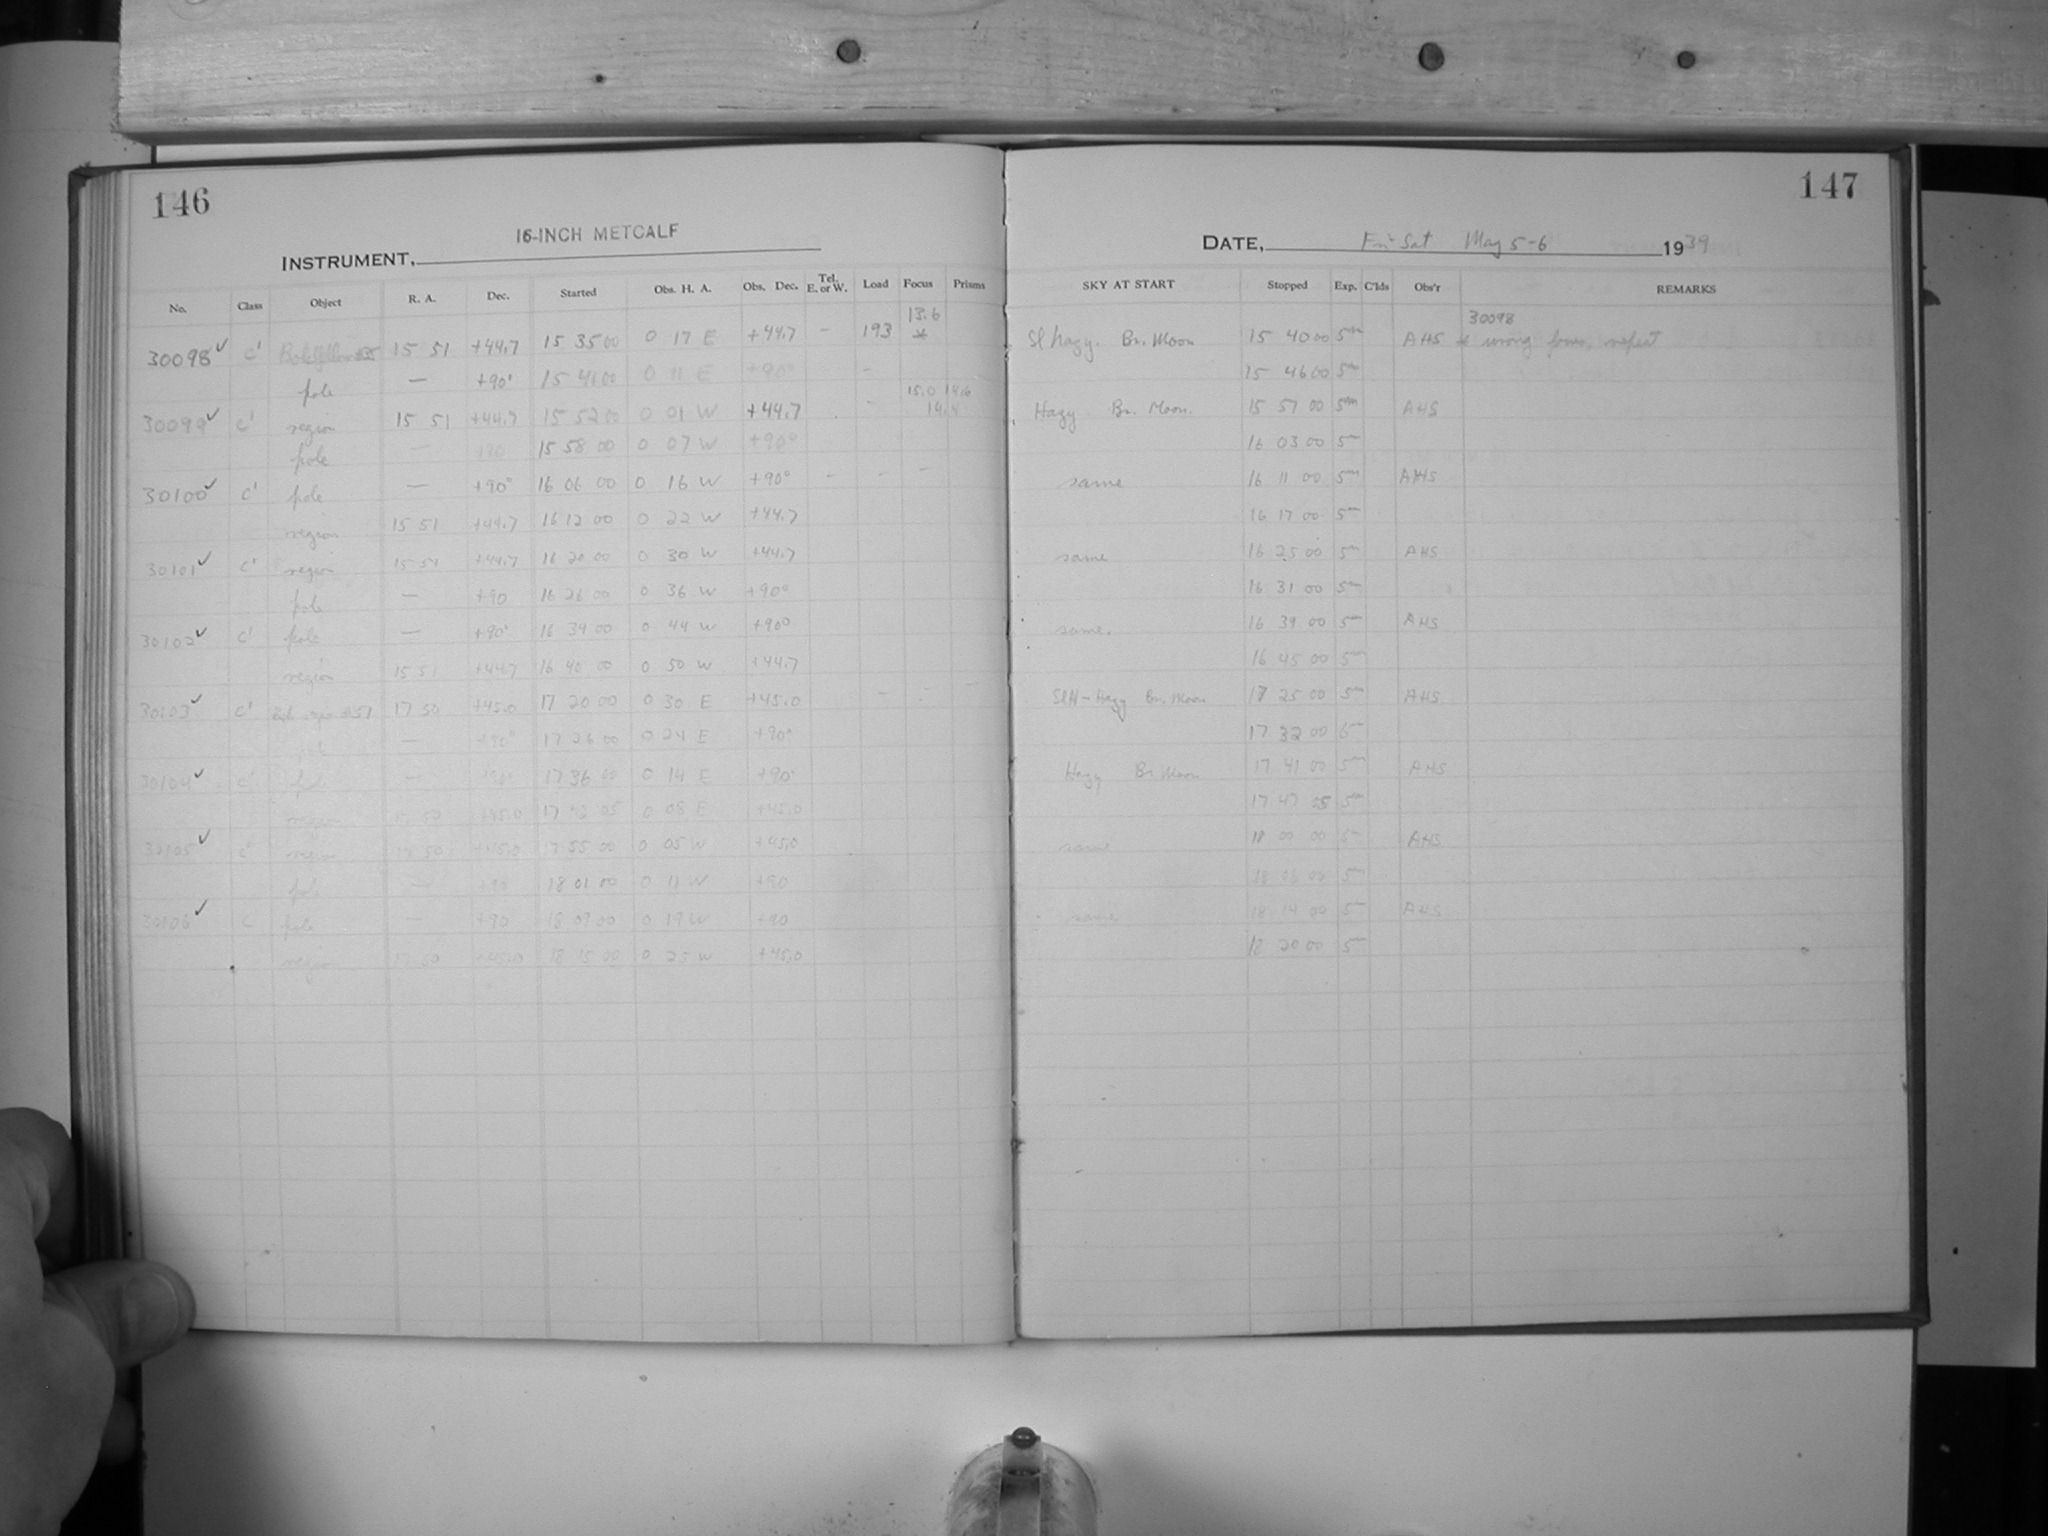 146
16-INCH METCALF
INSTRUMENT,
No. Class Object R. A. Dec. Started Obs. H. A. Obs. Dec. Tel. E. or W. Load Focus Prisms
13.6
30098 ✓ C' 15 51 +44.7 15 35 00 0 17 E +44.7 – 193 *
pole — +90° 15 41 00 0 11 E +90° -
15.0 14.6
30099 ✓ C' region 15 51 +44.7 15 52 00 0 01 W +44.7 - 14.4
pole — +90 15 58 00 0 07 W +90°
30100 ✓ C' pole — +90° 16 06 00 0 16 W +90° - - -
region 15 51 +44.7 16 12 00 0 22 W +44.7
30101 ✓ C' region 15 51 +44.7 16 20 00 0 30 W +44.7
pole — +90 16 26 00 0 36 W +90°
30102 ✓ C' pole — +90° 16 34 00 0 44 W +90°
region 15 51 +44.7 16 40 00 0 50 W +44.7
30103 ✓ C' 17 50 +45.0 17 20 00 0 30 E +45.0 - - -
— +90° 17 26 00 0 24 E +90°
30104 ✓ C' pole — +90° 17 36 00 0 14 E +90°
region 17 50 +45.0 17 42 05 0 08 E +45.0
30105 ✓ C' region +45.0 17 55 00 0 05 W +45.0
pole — +90 18 01 00 0 11 W +90
30106 ✓ C pole — +90 18 09 00 0 19 W +90
region 17 50 +45.0 18 15 00 0 25 W +45.0
147
DATE, Fri-Sat May 5-6 1939
SKY AT START Stopped Exp. C'lds Obs'r REMARKS
30098
Sl hazy. Br. Moon 15 40 00 5m AHS * wrong focus, repeat
15 46 00 5m
Hazy Br. Moon. 15 57 00 5m AHS
16 03 00 5m
same 16 11 00 5m AHS
16 17 00 5m
same 16 25 00 5m AHS
16 31 00 5m
same. 16 39 00 5m AHS
16 45 00 5m
SlH-Hazy Br. Moon 17 25 00 5m AHS
17 32 00 6m
Hazy Br. Moon 17 41 00 5m AHS
17 47 05 5m
same 18 00 00 5m AHS
18 06 00 5m
same 18 14 00 5m AHS
18 20 00 5m